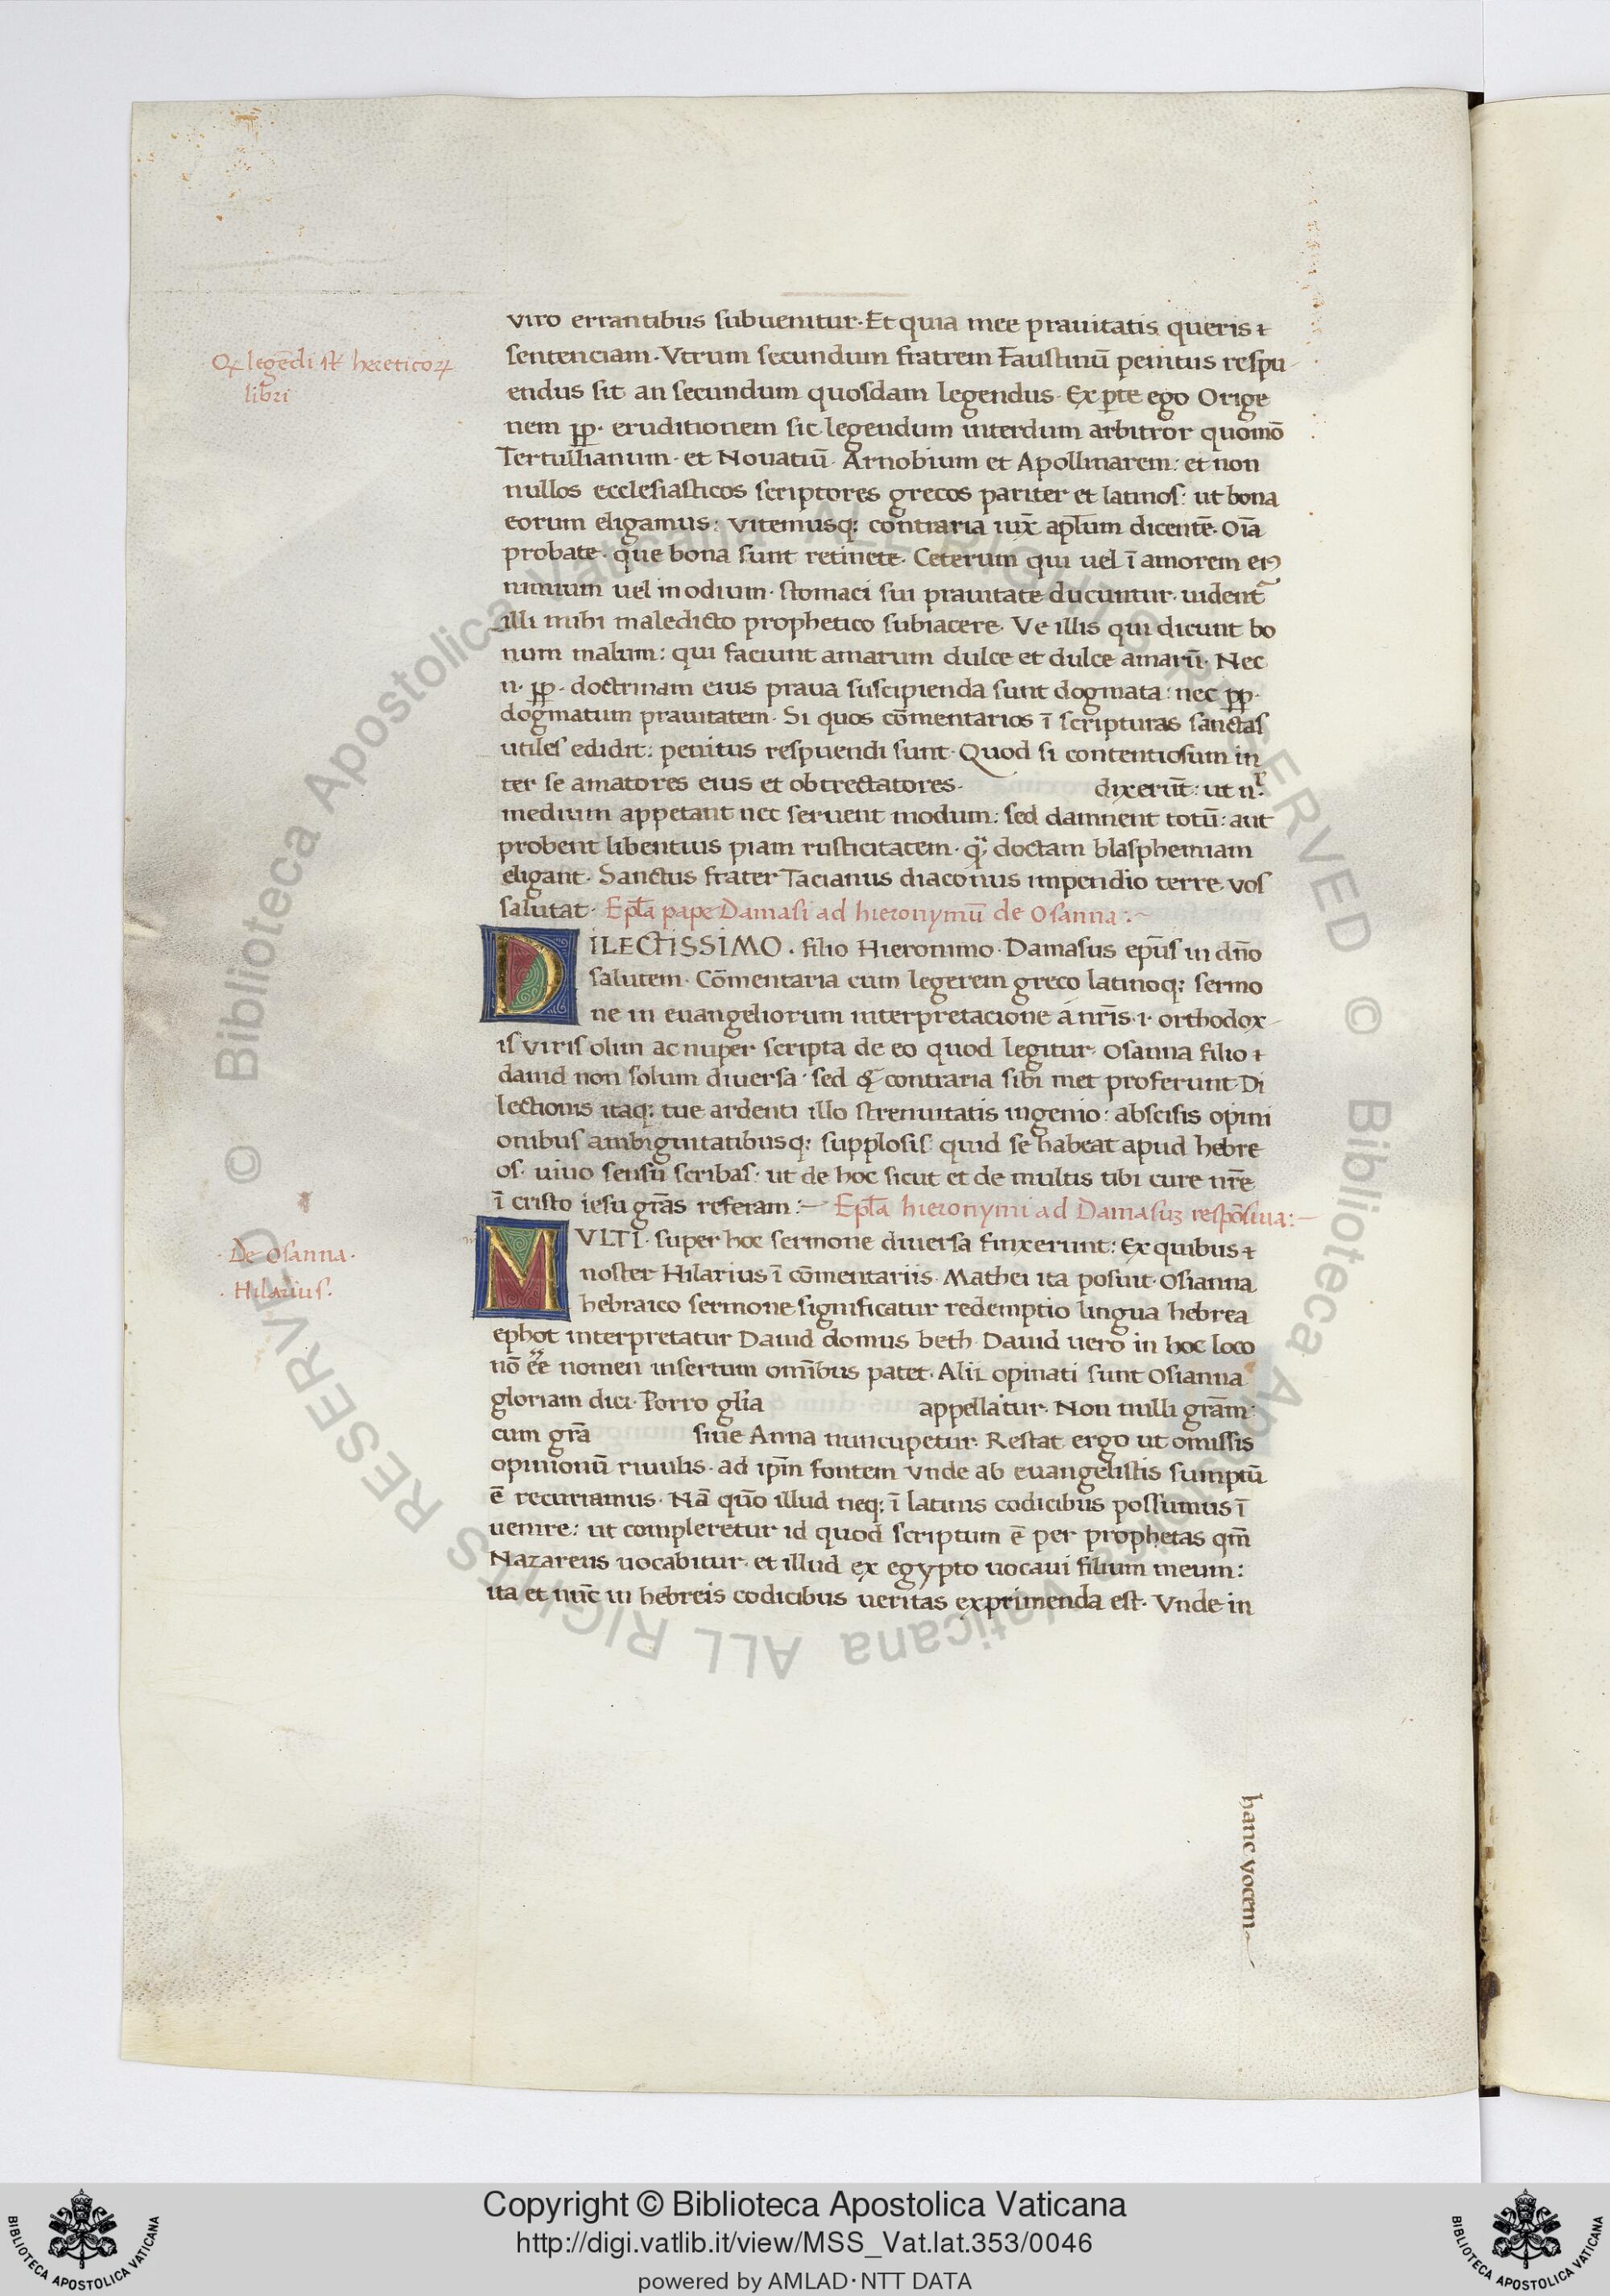 viro errantibus subuenitur. Et quia mee prauitatis queris ⁊
sentenciam. Vtrum secundum fratrem Faustinū penitus respu
endus sit an secundum quosdam legendus. Ex pte ego Orige
nem pp. eruditionem sic legendum interdum arbitror quomō
Tertullianum. et Nouatiū. Arnobium et Apollinarem: et non
nullos ecclesiasticos scriptores grecos pariter et latinos: ut bona
eorum eligamus: vitemusq; contraria iux̄ aplum dicentē. Oīa
probate. que bona sunt retinete. Ceterum qui uel ī amorem eiꝰ
nimium uel in odium. stomaci sui prauitate ducuntur. uident̄
illi mihi maledicto prophetico subiacere. Ve illis qui dicunt bo
num malum: qui faciunt amarum dulce et dulce amarū. Nec
n. pp. doctrinam eius praua suscipienda sunt dogmata: nec pp.
dogmatum prauitatem. Si quos cōmentarios ī scripturas sanctas
utiles edidit: penitus respuendi sunt. Quod si contentiosum in
ter se amatores eius et obtrectatores. dixerūt: ut n.
medium appetant nec seruent modum: sed damnent totū: aut
probent libentius piam rusticitatem. doctam blasphemiam
eligant. Sanctus frater Tacianus diaconus impendio terre vos
salutat. Epl̄a pape Damasi ad hieronymū de Osanna:~
DILECTISSIMO. filio Hieronimo. Damasus ep̄us in dn̄o
salutem. Cōmentaria cum legerem greco latinoq; sermo
ne in euangeliorum interpretacione a nr̄is. i. orthodox
is viris olim ac nuper scripta de eo quod legitur. Osanna filio ⁊
dauid non solum diuersa. sed contraria sibi met proferunt. Di
lectionis itaq; tue ardenti illo strenuitatis ingenio: abscisis opini
onibus ambiguitatibusq; supplosis quid se habeat apud hebre
os. uiuo sensu scribas: ut de hoc sicut et de multis tibi cure nr̄e
ī cristo iesu gr̄as referam:— Epl̄a hieronymi ad Damasuꝫ respōsiua:—
MVLTI. super hoc sermone diuersa finxerunt: Ex quibus ⁊
noster Hilarius ī cōmentariis. Mathei ita posuit. Osianna
hebraico sermone significatur redemptio lingua hebrea
ephot interpretatur Dauid domus beth. Dauid uero in hoc loco
nō ēe nomen insertum om̄ibus patet. Alii opinati sunt Osianna
gloriam dici. Porro glīa appellatur. Non nulli grām
cum grā siue Anna nuncupetur. Restat ergo ut omissis
opinionū riuulis. ad ip̄m fontem vnde ab euangelistis sumptū
ē recuriamus. Nā quō illud neq; ī latinis codicibus possumus ī
uenire: ut compleretur id quod scriptum ē per prophetas qm̄
Nazareus uocabitur. et illud ex egypto uocaui filium meum:
ita et nūc in hebreis codicibus ueritas exprimenda est. Vnde in
hanc vocem
legēdi st̄ hereticoꝝ
libri
De Osanna.
Hilarius.
© Biblioteca Apostolica Vaticana ALL RIGHTS RESERVED
© Biblioteca Apostolica Vaticana ALL RIGHTS RESERVED
Copyright © Biblioteca Apostolica Vaticana
http://digi.vatlib.it/view/MSS_Vat.lat.353/0046
powered by AMLAD·NTT DATA
BIBLIOTECA APOSTOLICA VATICANA
BIBLIOTECA APOSTOLICA VATICANA